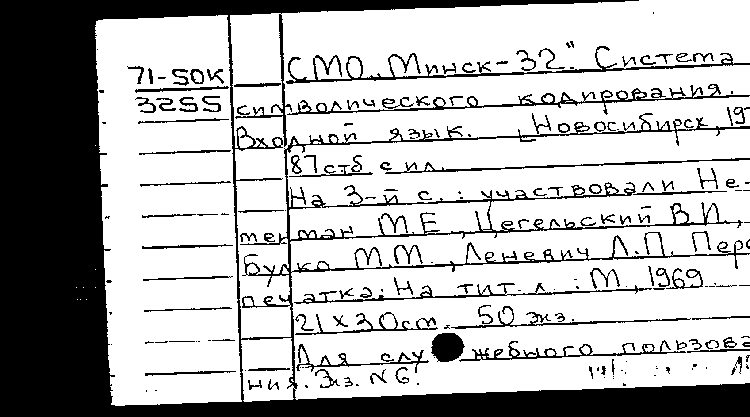 71-50К
3255
СМО „Минск-32." Система
символического кодирования.
Входной язык. [Новосибирск, 19
87 стб с ил.
На 3-й с.: участвовали Не-
текман М.Е., Цегельский В.И.,
Булко М.М., Леневич Л.П. Пере
печатка: На тит. л.: М., 1969
21 х 30 см. 50 экз.
Для служебного пользова
ния. Экз. N 6.